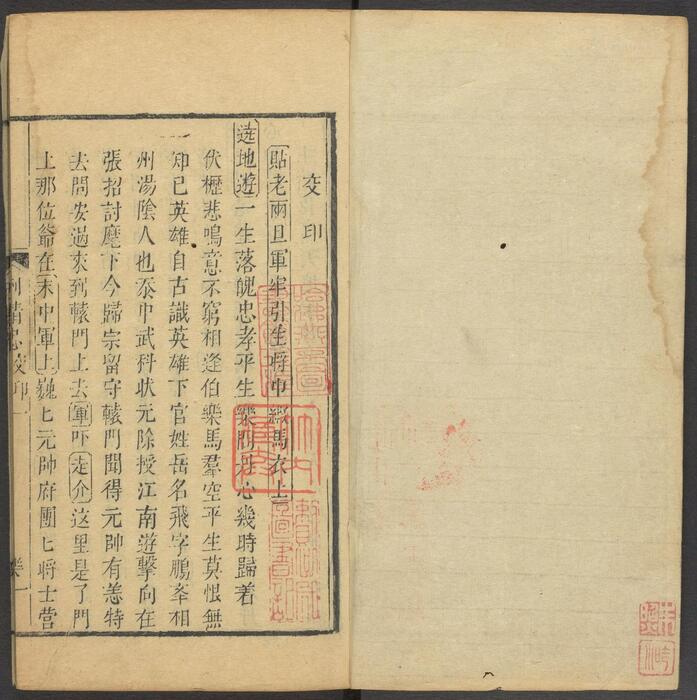 交印
貼老兩旦軍牢引生將巾緞馬衣上
遶地遊一生落魄忠孝平生樂剛丹心幾時歸着
伏櫪悲鳴意不窮相逢伯樂馬羣空平生莫恨無
知已英雄自古識英雄下官姓岳名飛字鵬峯相
州湯陰人也忝中武科狀元除授江南遊擊向在
張招討麾下今歸宗留守轅門聞得元帥有恙特
去問安過來到轅門上去軍吓走介这里是了門
上那位爺在末中軍上巍匕元帥府團匕將士營
精忠交印一
樂一